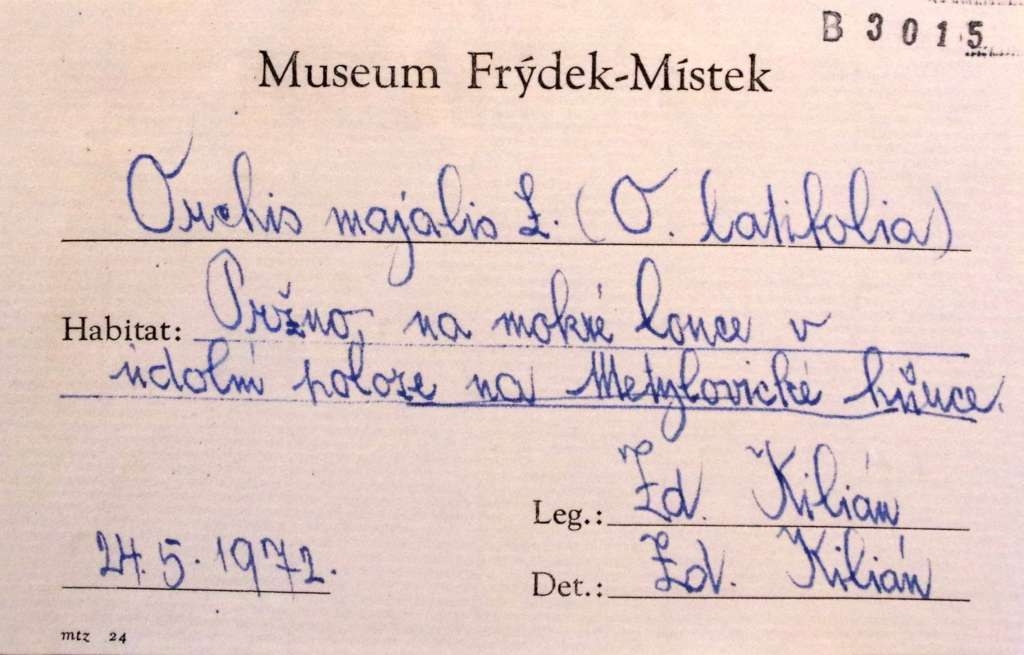 B 3015
Museum Frýdek-Místek
Orchis majalis L. (O. latifolia)
Habitat: Pržno, na mokré louce v
údolní poloze na Metylovické hůrce.
Leg.: Zd. Kilián
24.5.1972.
Det.: Zd. Kilián
mtz 24